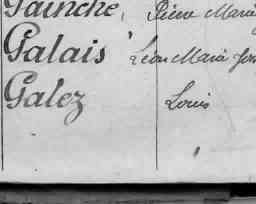 Painche, Pierre Marie
Galais Léon Marie Jos
Galez Louis